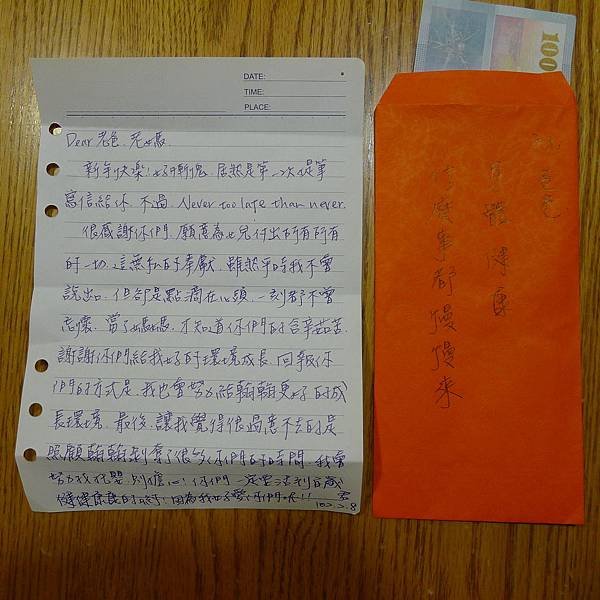 DATE:
TIME:
PLACE:
Dear 老爸、老媽
新年快樂!好慚愧 居然是第一次提筆
寫信給你 不過 Never too late than never.
很感謝你們 願意為女兒付出所有所有
的一切 這無私的奉獻 雖然平時我不曾
說出口 但卻是點滴在心頭 一刻都不曾
忘懷 當了媽媽 才知道你們的含辛茹苦
謝謝你們給我好的環境成長 回報你
們的方式是 我也會努力給翰翰更好的成
長環境 最後 讓我覺得很過意不去的是
照顧翰翰剝奪了很多你們的時間 我會
努力找托嬰 別擔心!你們一定要活到百歲
健健康康的 因為我好愛你們!!
102.2.8
100
爸爸
身體健康
什麼事都慢慢來